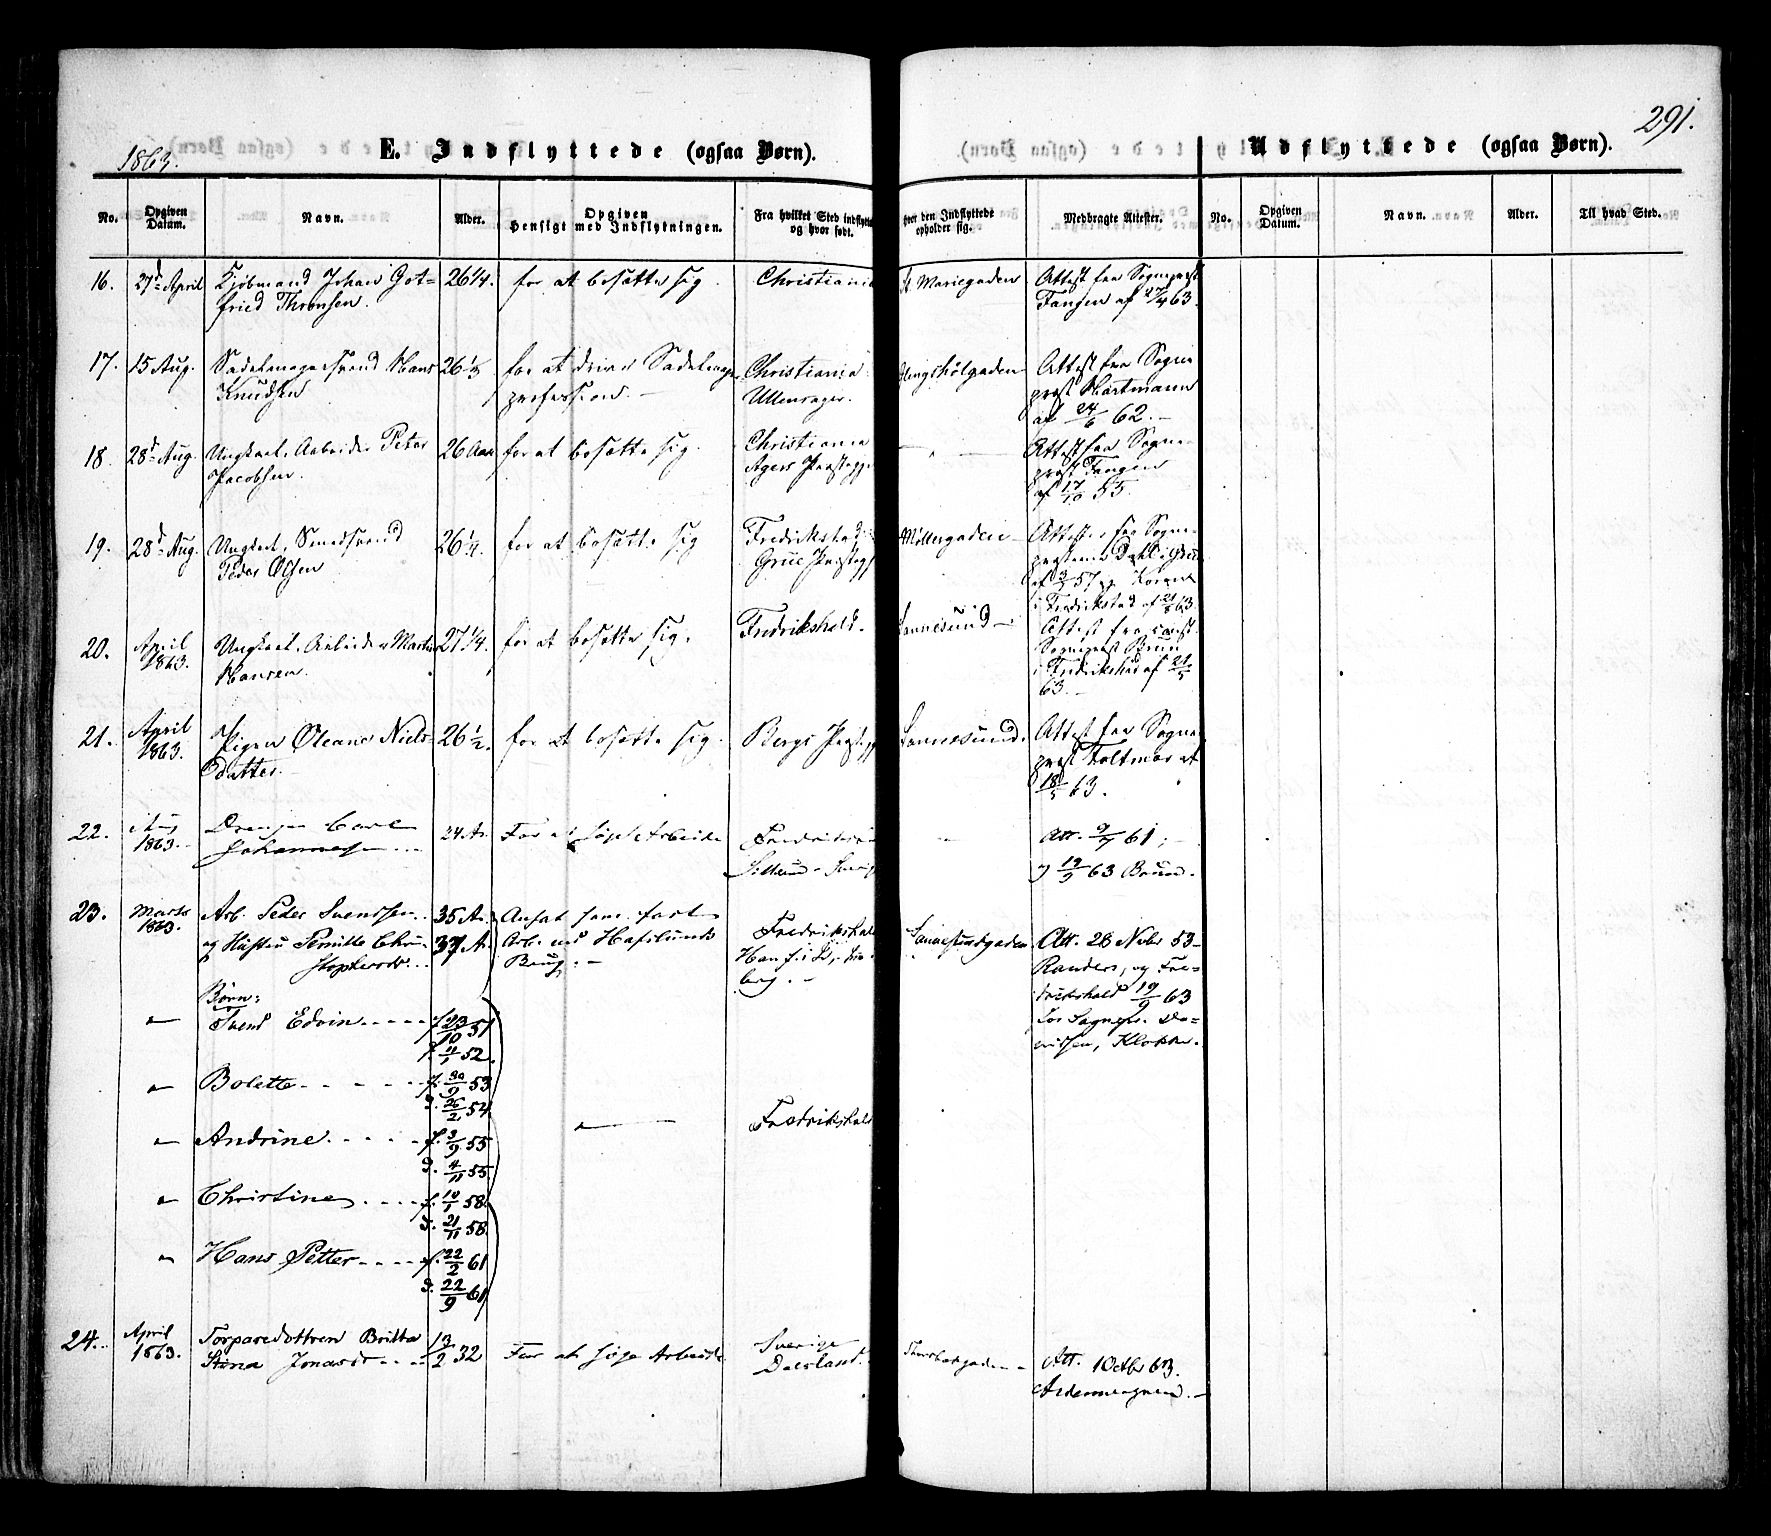 291.
1863.
E. Indflyttede (ogsaa Børn).
Udflyttede (ogsaa Børn).
No.
Opgiven Datum.
Navn.
Alder.
Opgiven Hensigt med Indflytningen.
Fra hvilket Sted indflyttet og hvor født.
hvor den Indflyttede opholder sig.
Medbragte Attester.
No.
Opgiven Datum.
Navn.
Alder.
Til hvad Sted.
16. 27d April Kjøbmand Johan Got= 26 1/4. for at bosætte sig. Christiania St. Mariegaden Attest fra Sognepræst
fried Thronsen. Fangen af 27/4 63.
17. 15 Aug. Sadelmagersvend Hans 26 1/3 for at drive Sadelmager Christiania Attest fra Sogne
Knudsen profession. Ullensager. præst Hartmann
af 24/6 62.
18. 28d Aug. Ungkarl, Arbeider Peter 26 Aar for at bosætte sig. Christiania Attest fra Sogne
Jacobsen. Agers Præstegj. præst Fangen
af 17/10 55.
19. 28d Aug. Ungkarl, Smedsvend 26 1/4. for at bosætte sig Fredrikstad Møllergaden Attester fra Sogne
Peder Olsen Grue Præstegj. præsterne
af 57 og
i Fredrikstad af 21/8 63.
20. April 1863. Ungkarl, Arbeider Martin 27 1/4. for at bosætte sig. Fredrikshald. Sannesund Attest fra
Hansen. Sognepræst Bruun
i Fredrikshald af 21/5
63.
21. April 1863. Pigen Oleane Niels= 26 1/2. for at bosætte sig. Bergs Præstegj. Sannesund. Attest fra Sogne
datter. præst af
18/5 63.
22. Aug 1863. Drengen Carl 24 A. For at søge Arbeide Att. 9/7 61;
Johannesen og 19/9 63 Bruun.
23. Marts 1863. Arb. Peder Svenssen 35 A. Ansat som fast Fredrikshald Sannesundgaden Att. 28 Novbr 53
og Hustru Pernille Chri= 37 A. Arb. ved Hafslunds Randers, og Fre=
stophersdr. Brug. berg. drikshald 19/9 63
Børn: for Sognepr.
" Svend Edvin f. 23/10 51 Klokker.
11/1 52.
" Bolette f. 30/9 53
D. 26/2 54
" Andrine f. 3/9 55 " Fredrikshald
D. 4/11 55
" Christine f. 10/1 58.
D. 21/11 58.
" Hans Petter f. 22/2 61
D. 22/9 61
24. April 1863. Torparedottren Britta 13/2 32 For at søge Arbeide Sverige Att. 1 Octbr 63.
Stina Jonasdr Dalsland.